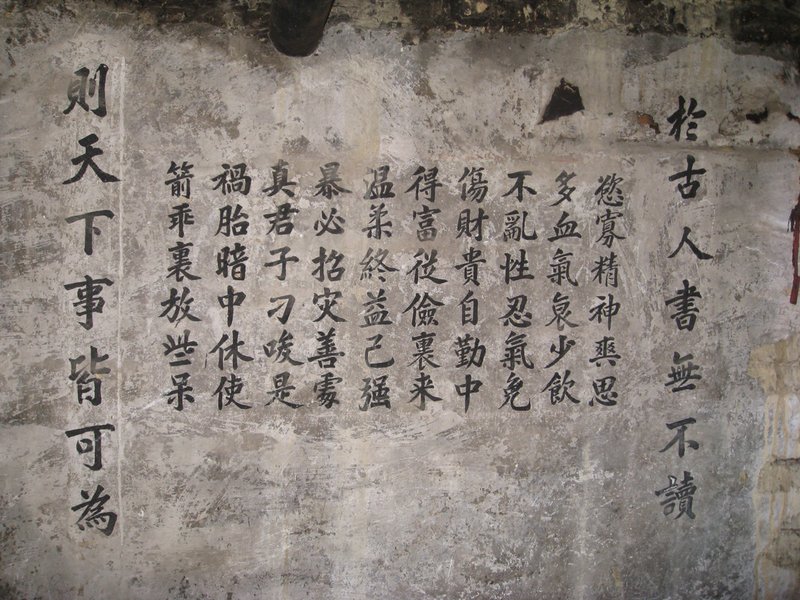 於古人書無不讀
慾寡精神爽思
多血氣衰少飲
不亂性忍氣免
傷財貴自勤中
得富從儉裏来
温柔終益己强
暴必招灾善處
真君子刁唆是
禍胎暗中休使
箭乖裏放些呆
則天下事皆可為